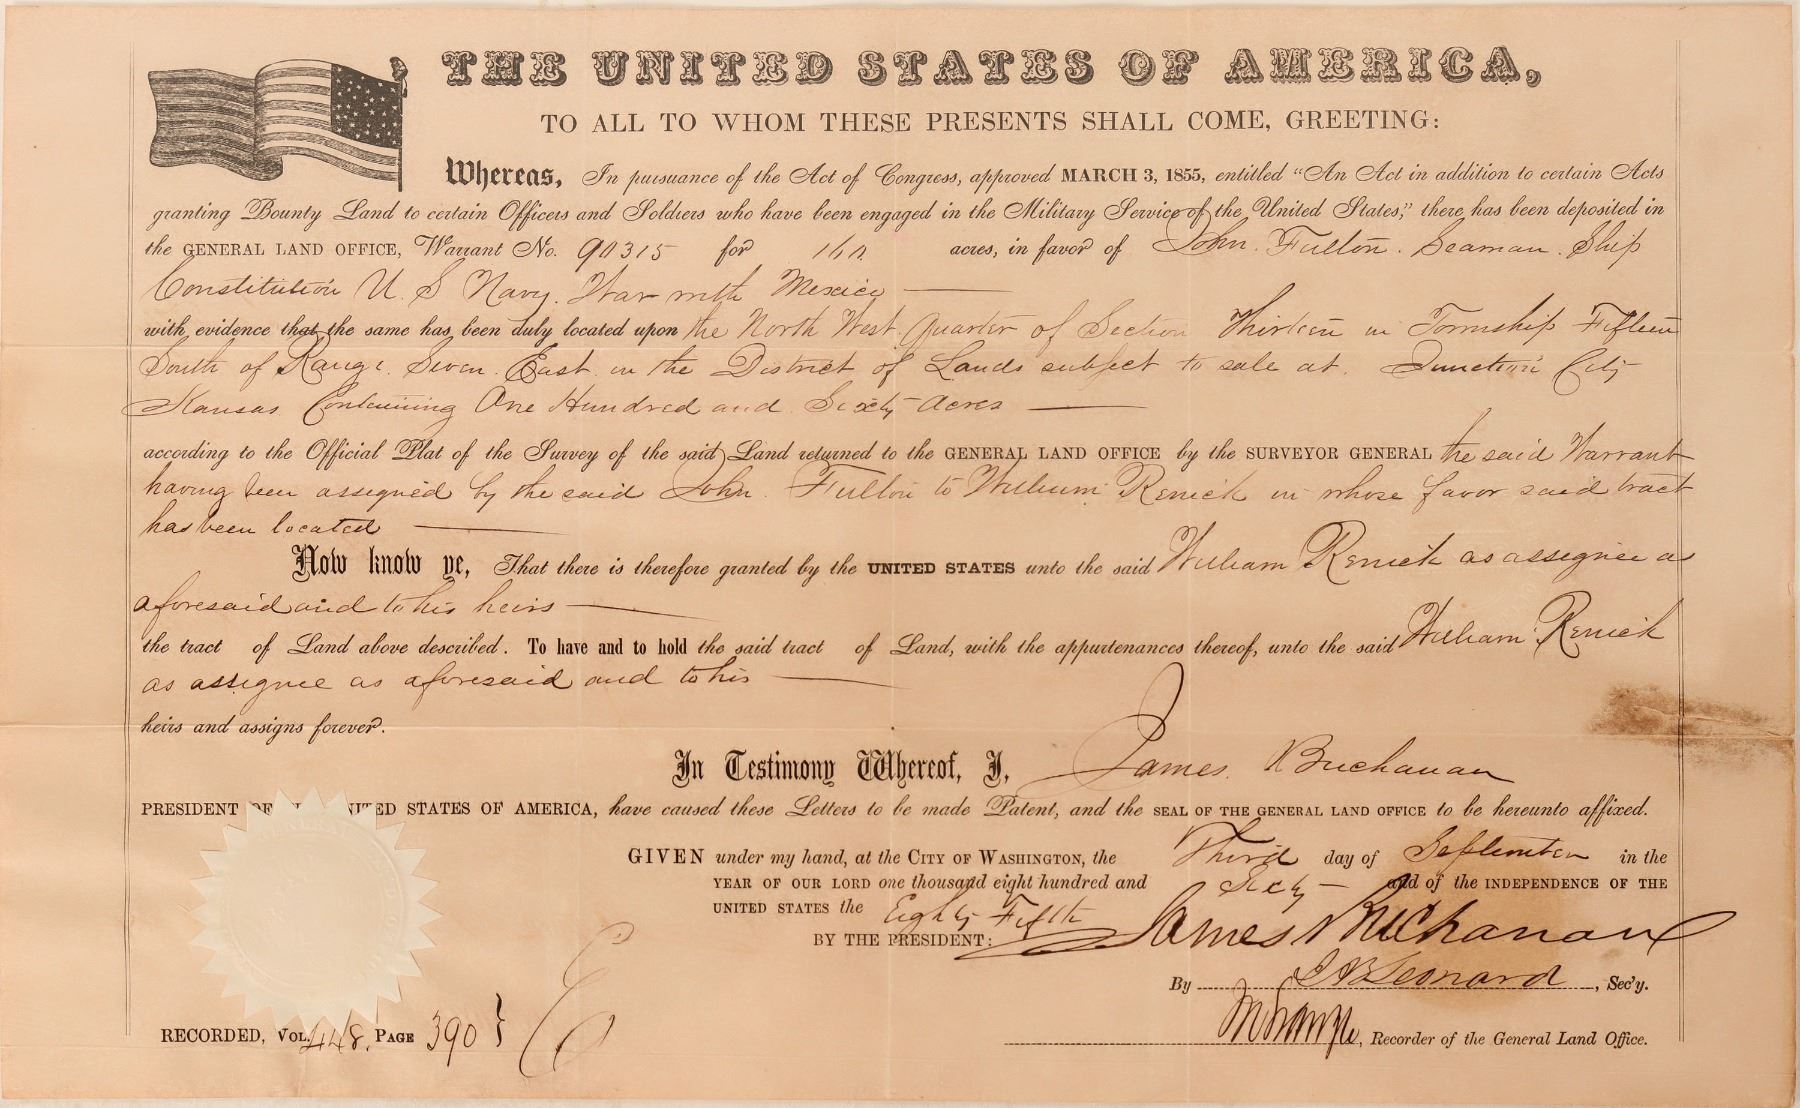 THE UNITED STATES OF AMERICA,
TO ALL TO WHOM THESE PRESENTS SHALL COME, GREETING:
Whereas, In pursuance of the Act of Congress, approved MARCH 3, 1855, entitled "An Act in addition to certain Acts
granting Bounty Land to certain Officers and Soldiers who have been engaged in the Military Service of the United States," there has been deposited in
the GENERAL LAND OFFICE, Warrant No. 90315 for 160 acres, in favor of John Fulton. Seaman. Ship
Constitution U. S Navy. War with Mexico
with evidence that the same has been duly located upon the North West Quarter of Section Thirteen in Township Fifteen
South of Range Seven East in the District of Lands subject to sale at Junction City
Kansas Containing One Hundred and Sixty Acres
according to the Official Plat of the Survey of the said Land returned to the GENERAL LAND OFFICE by the SURVEYOR GENERAL the said Warrant
having been assigned by the said John Fulton to William Renick in whose favor said tract
has been located
Now know ye, That there is therefore granted by the UNITED STATES unto the said William Renick as assignee as
aforesaid and to his heirs
the tract of Land above described. To have and to hold the said tract of Land, with the appurtenances thereof, unto the said William Renick
as assignee as aforesaid and to his
heirs and assigns forever.
In Testimony Whereof, I, James Buchanan
PRESIDENT OF THE UNITED STATES OF AMERICA, have caused these Letters to be made Patent, and the SEAL OF THE GENERAL LAND OFFICE to be hereunto affixed.
GIVEN under my hand, at the CITY OF WASHINGTON, the Third day of September in the
YEAR OF OUR LORD one thousand eight hundred and Sixty and of the INDEPENDENCE OF THE
UNITED STATES the Eighty Fifth
BY THE PRESIDENT: James Buchanan
By J B Leonard, Sec'y.
RECORDED, VOL. 448. PAGE 390 }
, Recorder of the General Land Office.